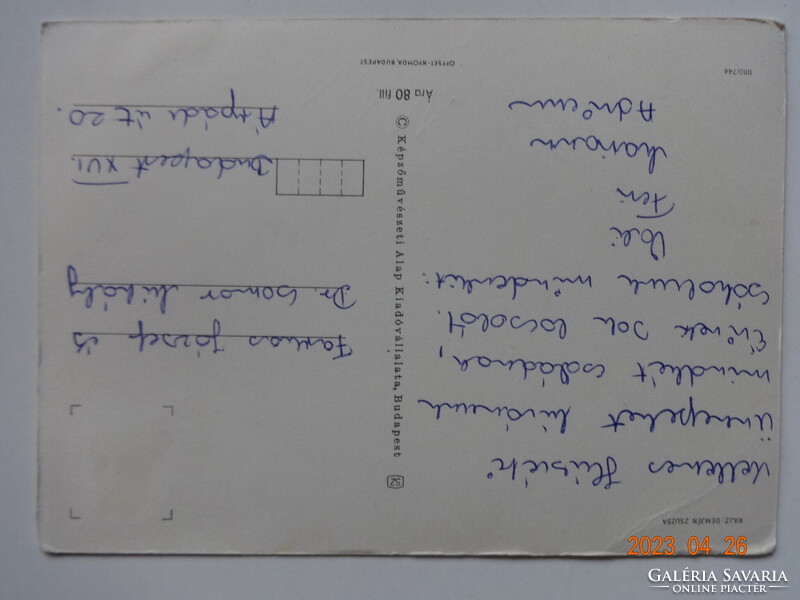 RAJZ: DEMJÉN ZSUZSA
Kellemes Húsvéti
ünnepeket kívánunk
mindkét családnak,
Évinek sok locsolót.
Csókolunk mindenkit:
Feri
Mariann
Adrienn
1110/744
© Képzőművészeti Alap Kiadóvállalata, Budapest
Ára 80 fill.
OFFSET-NYOMDA BUDAPEST
Farkas József és
Dr. Csomor Mihály
Budapest XVI.
Árpád út 20.
2023 04 26
GALÉRIA SAVARIA
ONLINE PIACTÉR